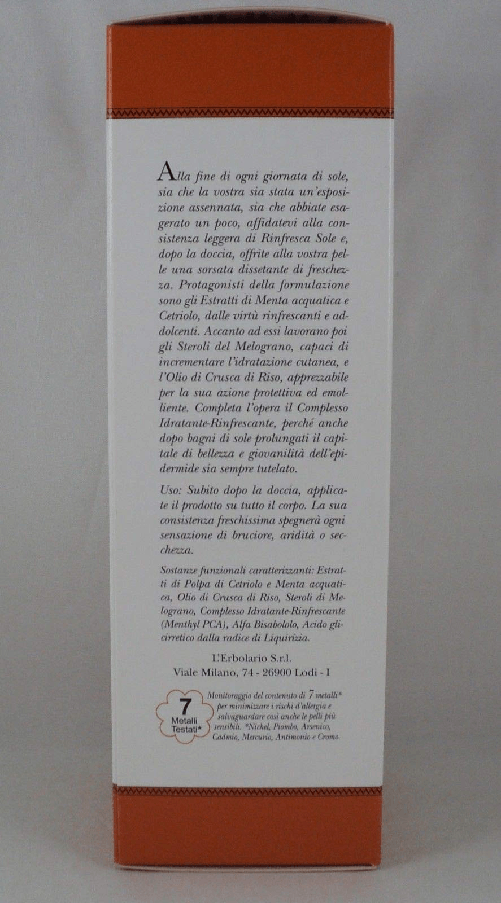 Alla fine di ogni giornata di sole,
sia che la vostra sia stata un'esposi-
zione assennata, sia che abbiate esa-
gerato un poco, affidatevi alla con-
sistenza leggera di Rinfresca Sole e,
dopo la doccia, offrite alla vostra pel-
le una sorsata dissetante di freschez-
za. Protagonisti della formulazione
sono gli Estratti di Menta acquatica e
Cetriolo, dalle virtù rinfrescanti e ad-
dolcenti. Accanto ad essi lavorano poi
gli Steroli del Melograno, capaci di
incrementare l'idratazione cutanea, e
l'Olio di Crusca di Riso, apprezzabile
per la sua azione protettiva ed emol-
liente. Completa l'opera il Complesso
Idratante-Rinfrescante, perché anche
dopo bagni di sole prolungati il capi-
tale di bellezza e giovanilità dell'epi-
dermide sia sempre tutelato.
Uso: Subito dopo la doccia, applica-
te il prodotto su tutto il corpo. La sua
consistenza freschissima spegnerà ogni
sensazione di bruciore, aridità o sec-
chezza.
Sostanze funzionali caratterizzanti: Estrat-
ti di Polpa di Cetriolo e Menta acquati-
ca, Olio di Crusca di Riso, Steroli di Me-
lograno, Complesso Idratante-Rinfrescante
(Menthyl PCA), Alfa Bisabololo, Acido gli-
cirretico dalla radice di Liquirizia.
L'Erbolario S.r.l.
Viale Milano, 74 - 26900 Lodi - I
7
Metalli
Testati*
Monitoraggio del contenuto di 7 metalli*
per minimizzare i rischi d'allergia e
salvaguardare così anche le pelli più
sensibili. *Nichel, Piombo, Arsenico,
Cadmio, Mercurio, Antimonio e Cromo.